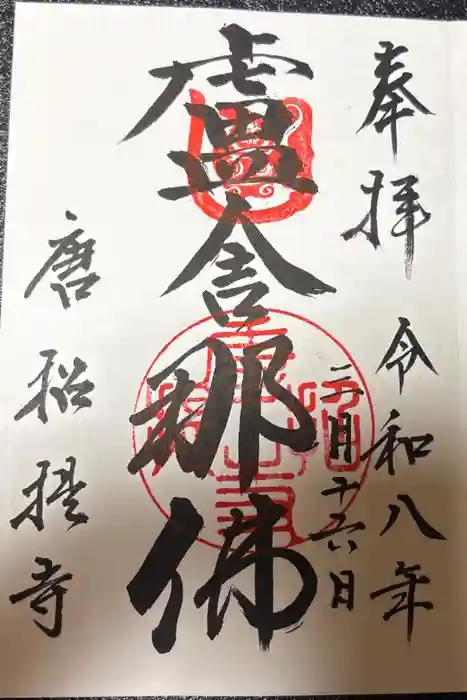 奉拝 令和八年
三月十六日
盧舎那佛
唐招提寺